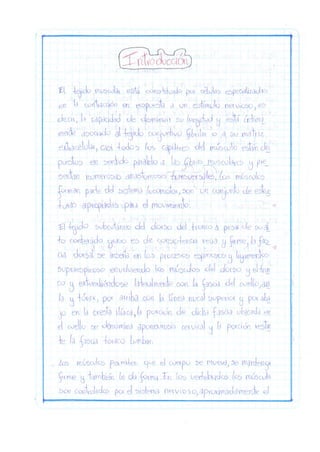 Introducción
El tejido muscular está constituido por células especializadas
en la contracción en respuesta a un estímulo nervioso, es
decir, la capacidad de disminuir su longitud y está íntima
mente asociado al tejido conjuntivo fibrilar o a su matriz
extracelular, casi todos los capilares del músculo están dis
puestos en sentido paralelo a las fibras musculares y pre
sentan numerosas anastomosis transversales, los músculos
forman parte del sistema locomotor, son un conjunto de estruc
turas apropiadas para el movimiento.
El tejido subcutáneo del dorso del tronco a pesar de su al
to contenido graso es de consistencia recia y firme, la fas
cia dorsal se inserta en los procesos espinosos y ligamentos
supraespinosos envolviendo los músculos del dorso y
y extendiéndose lateralmente con la fascia del cuello,
la y tórax, por arriba con la línea nucal superior y por aba
jo en la cresta ilíaca, la porción de dicha fascia ubicada en
el cuello se denomina aponeurosis cervical y la porción restan
te la fascia toraco lumbar.
Los músculos permiten que el cuerpo se mueva, se mantenga
firme y también le da forma. En los vertebrados los músculos
son controlados por el sistema nervioso, aproximadamente el